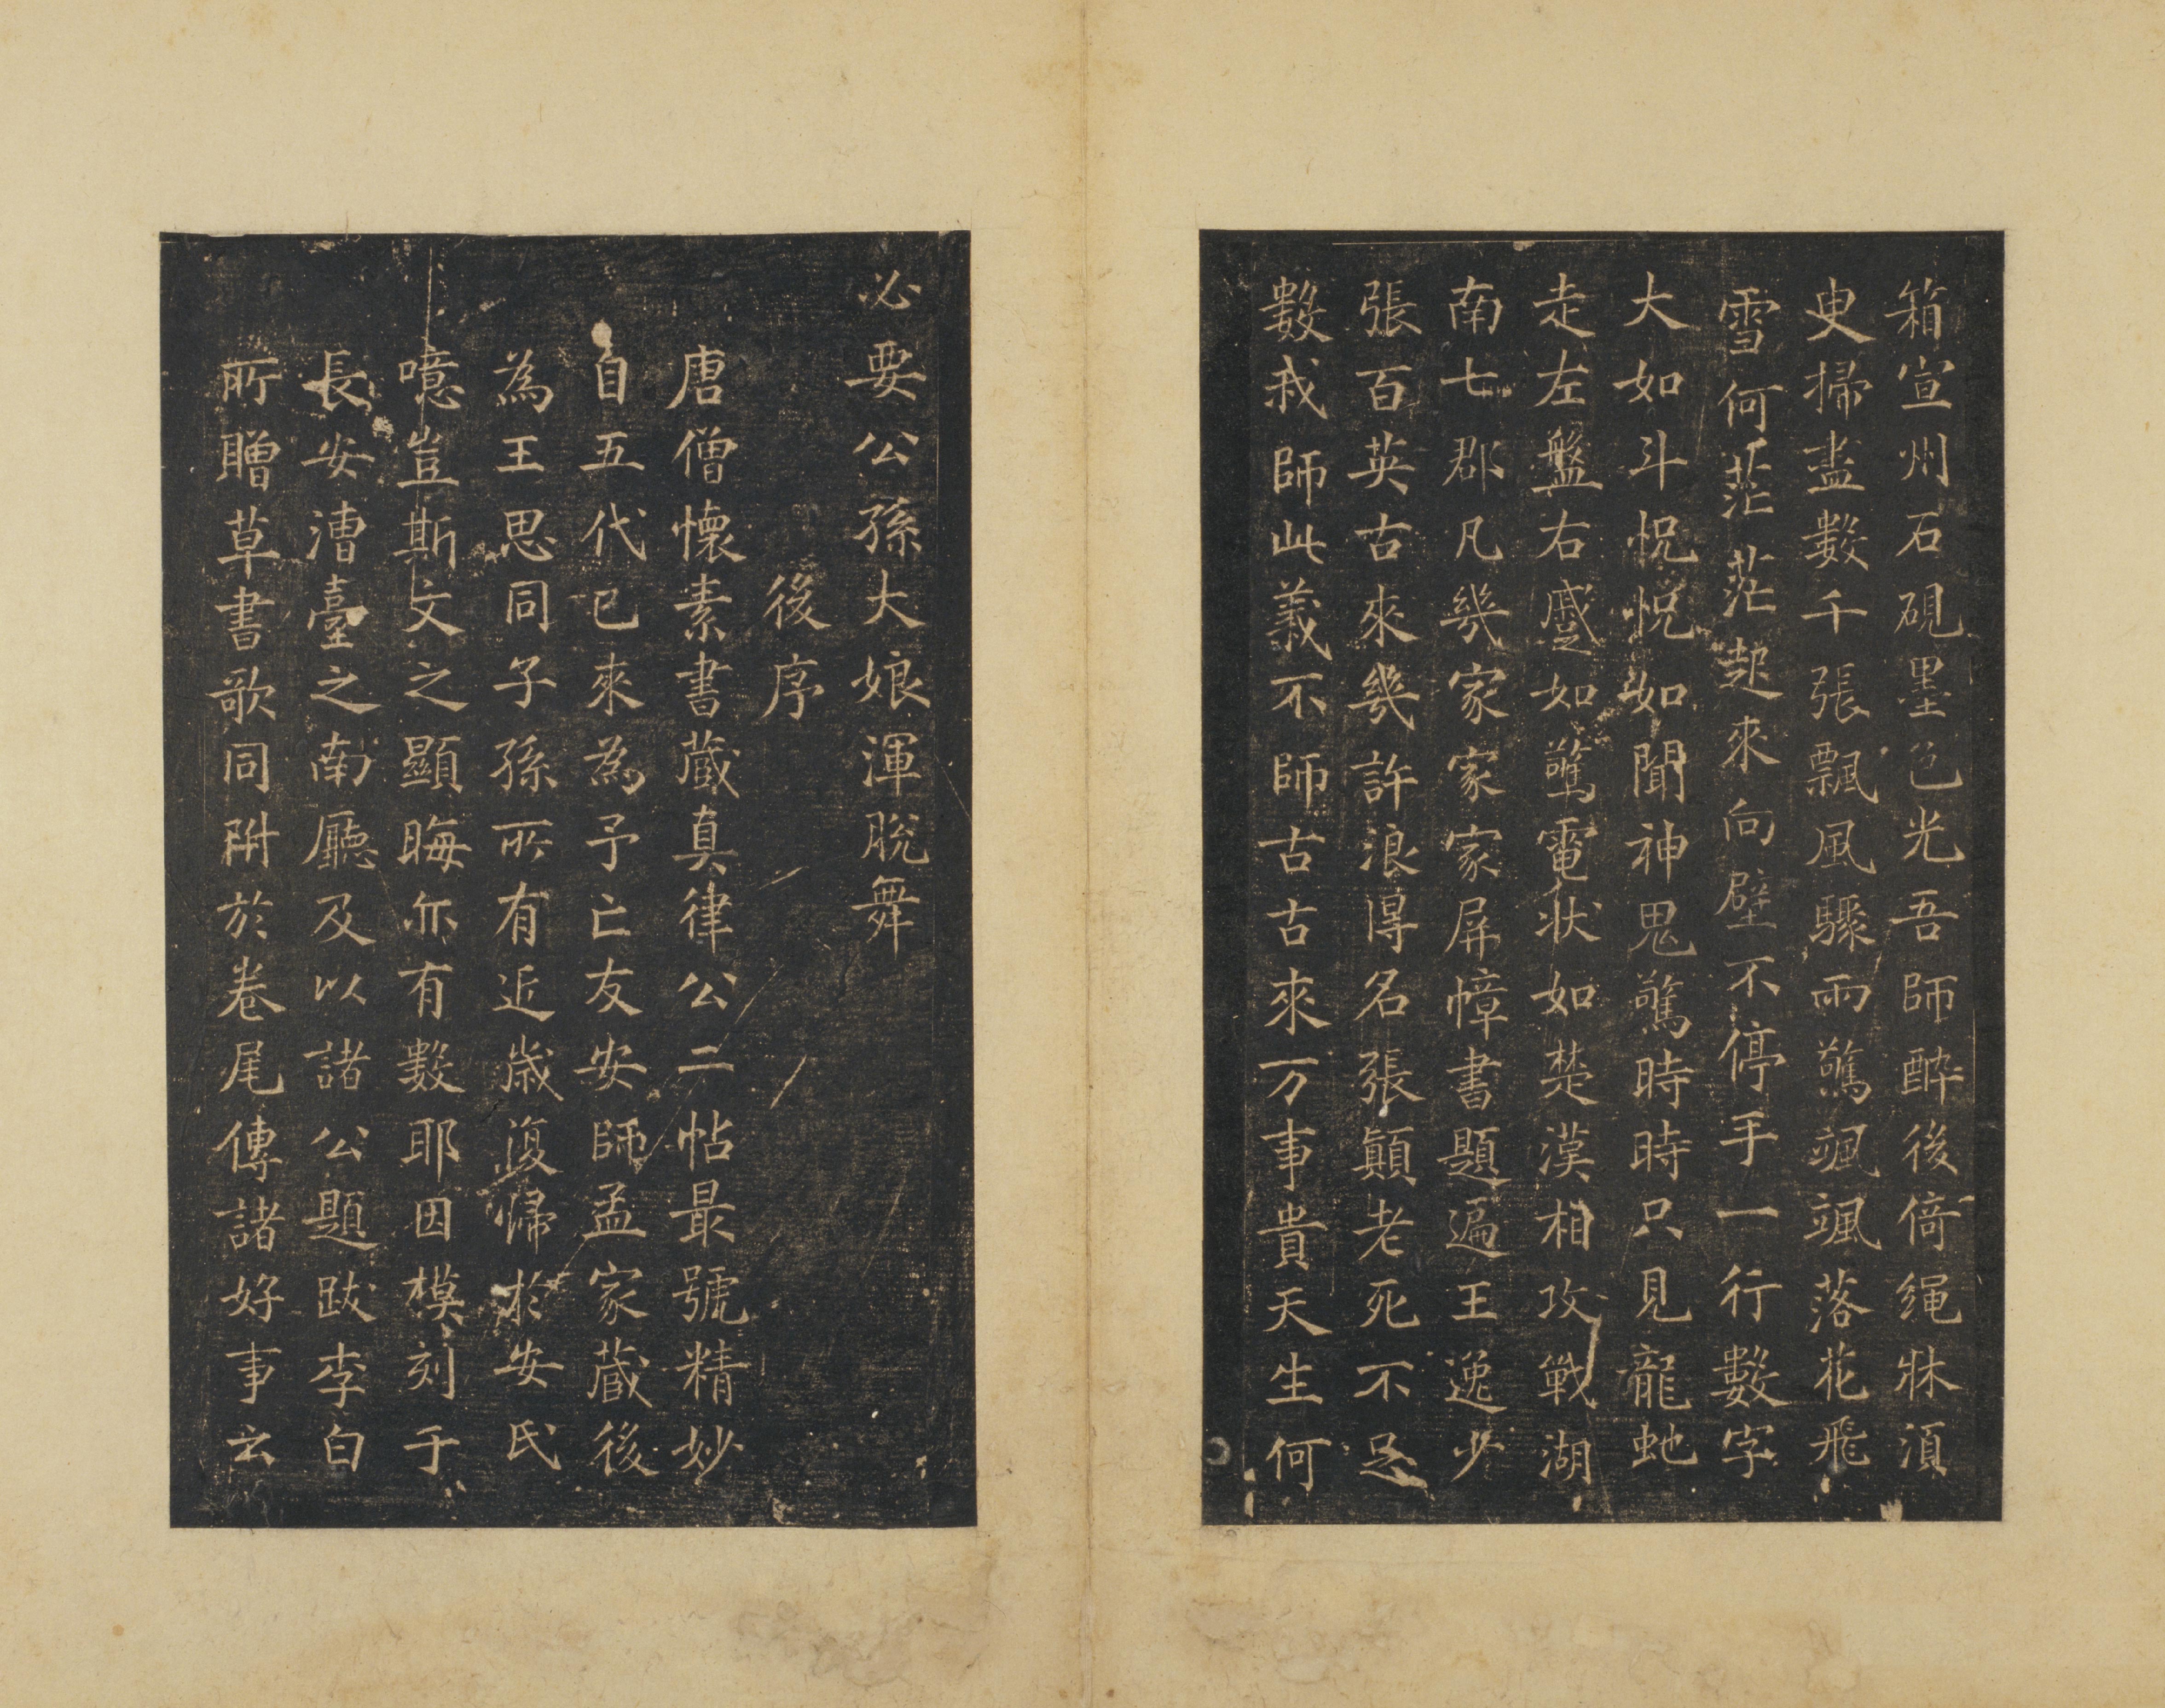 箱宣州石硯墨色光吾師醉後倚繩牀須
臾掃盡數千張飄風驟雨驚颯颯落花飛
雪何茫茫起來向壁不停手一行數字
大如斗怳怳如聞神鬼驚時時只見龍虵
走左盤右蹙如驚電狀如楚漢相攻戰湖
南七郡凡幾家家家屏幛書題遍王逸少
張百英古來幾許浪得名張顛老死不足
數我師此義不師古古來万事貴天生何
必要公孫大娘渾脫舞
後序
唐僧懷素書藏真律公二帖最號精妙
自五代已來為予亡友安師孟家藏後
為王思同子孫所有近歲復歸於安氏
噫豈斯文之顯晦亦有數耶因模刻于
長安漕臺之南廳及以諸公題跋李白
所贈草書歌同附於卷尾傳諸好事云